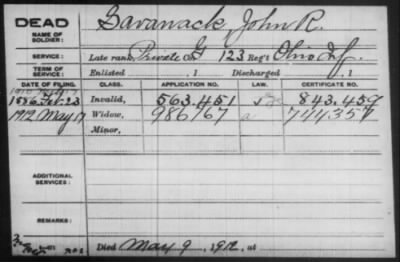 DEAD
NAME OF SOLDIER:
Savanack John R.
SERVICE:
Late rank, Private Co. G 123 Reg't Ohio Inf.
TERM OF SERVICE:
Enlisted , 1 Discharged , 1
DATE OF FILING. CLASS. APPLICATION NO. LAW. CERTIFICATE NO.
1886 Feb. 23 Invalid, 563.451 843.459
1912 May 17 Widow, 986767 744357
Minor,
ADDITIONAL SERVICES:
REMARKS:
Died May 9, 1912, at